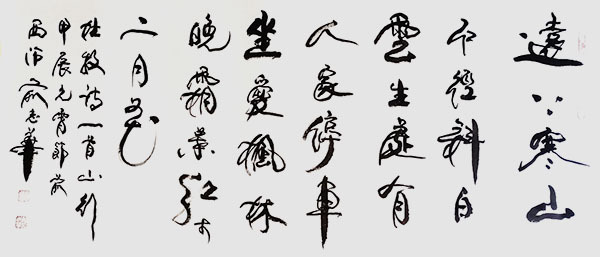 遠上寒山
石徑斜白
雲生處有
人家停車
坐愛楓林
晚霜葉紅於
二月花
杜牧詩一首山行
甲辰元宵節前